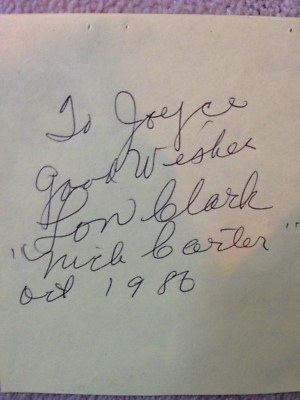 To Joyce
Good Wishes
Lon Clark
"Nick Carter"
Oct 1986